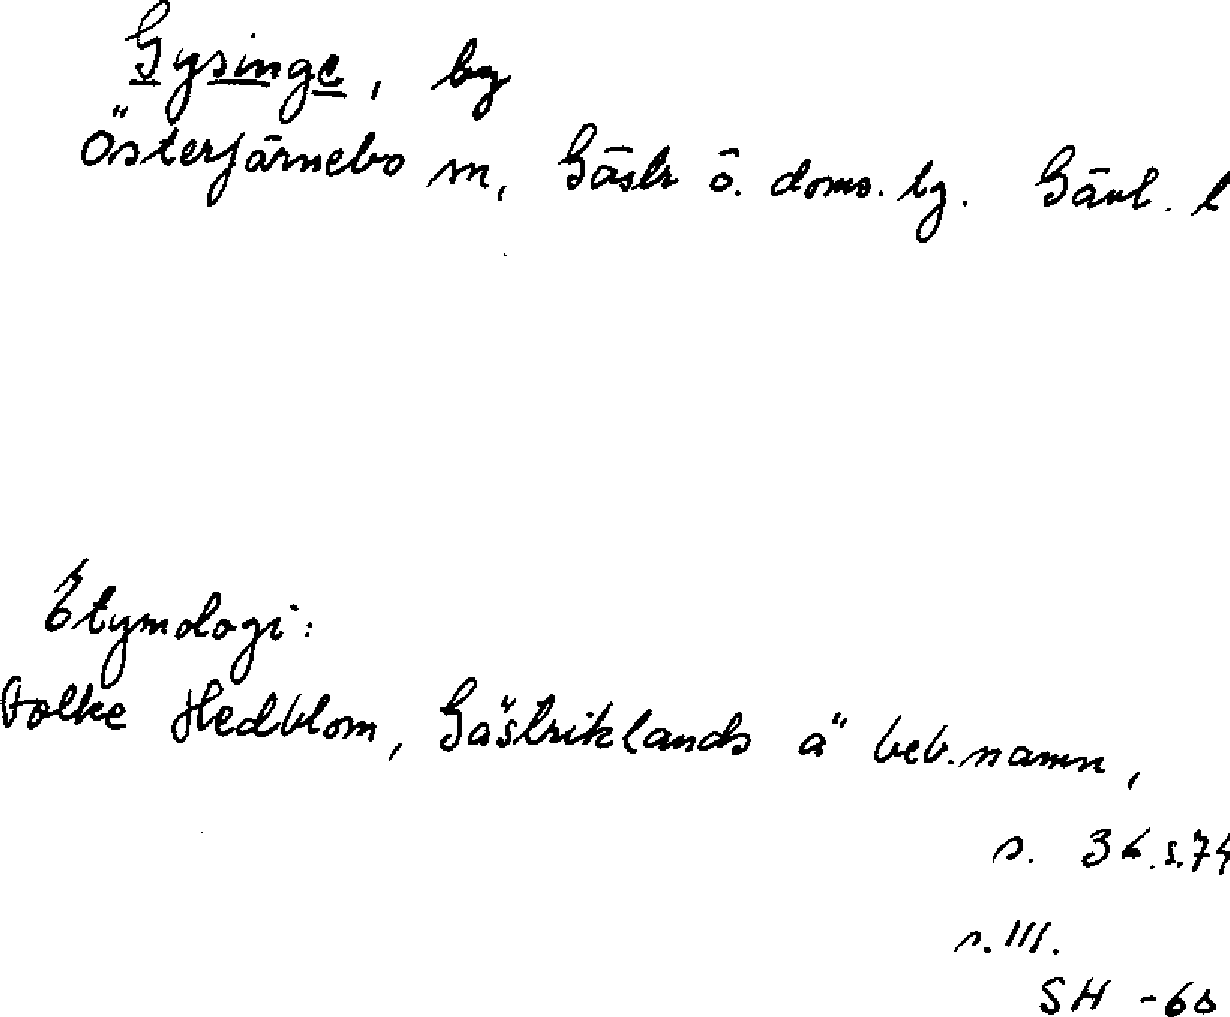 Gysinge, by
Österfärnebo sn, Gästr ö. doms. tg. Gävl. l
Etymologi:
Folke Hedblom, Gästriklands ä beb.namn,
s. 36. s.74
s. 111.
SH -60